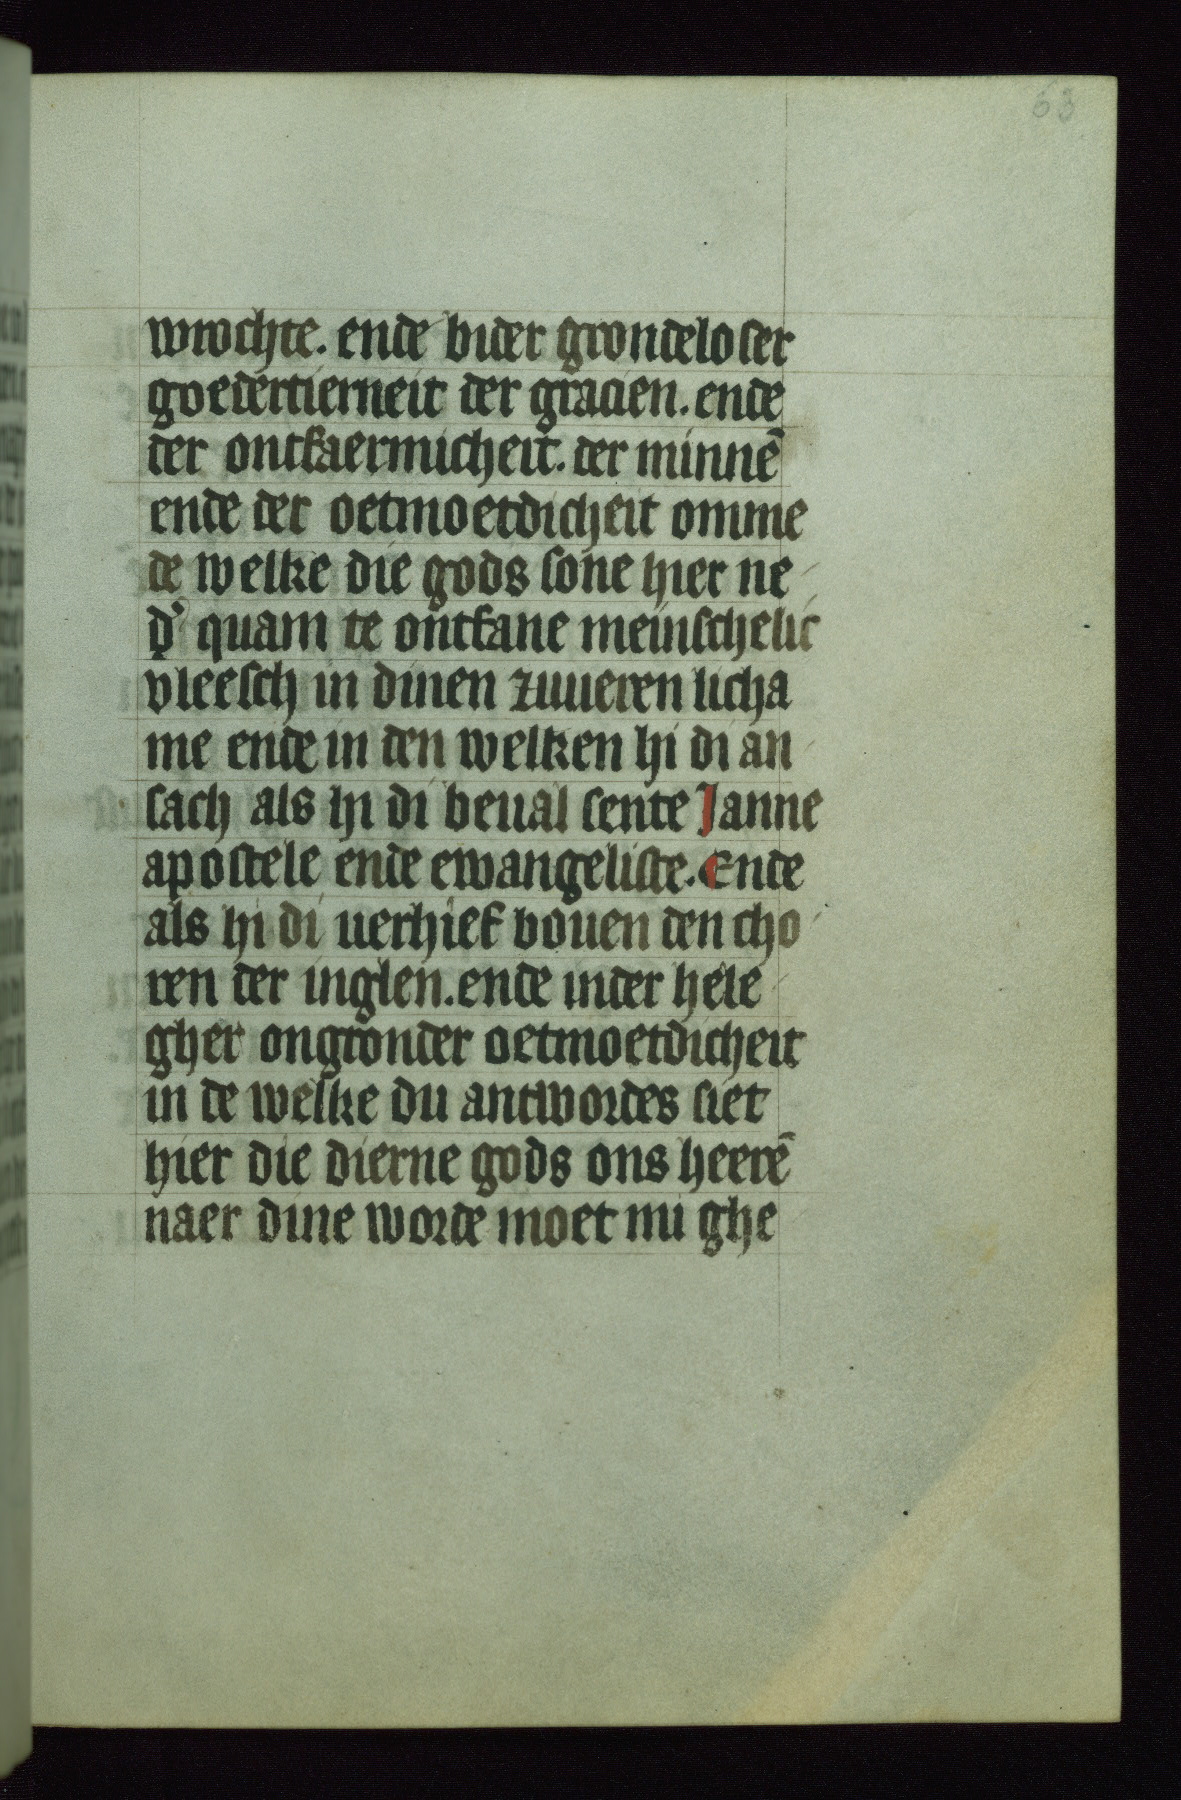 63
wrochte. ende bider grondeloser
goedertierneit der gracien. ende
der ontfaermicheit. der minnē
ende der oetmoetdicheit omme
de welke die gods sone hier ne
d͛ quam te ontfane meinschelic
vleesch in dinen zuueren licha
me ende in den welken hi di an
sach als hi di beual sente Janne
apostele ende ewangeliste. Ende
als hi di uerhief bouen den cho
ren der inglen. ende inder hele
gher ongronder oetmoetdicheit
in de welke du antwordes siet
hier die dierne gods ons heerē
naer dine worde moet mi ghe